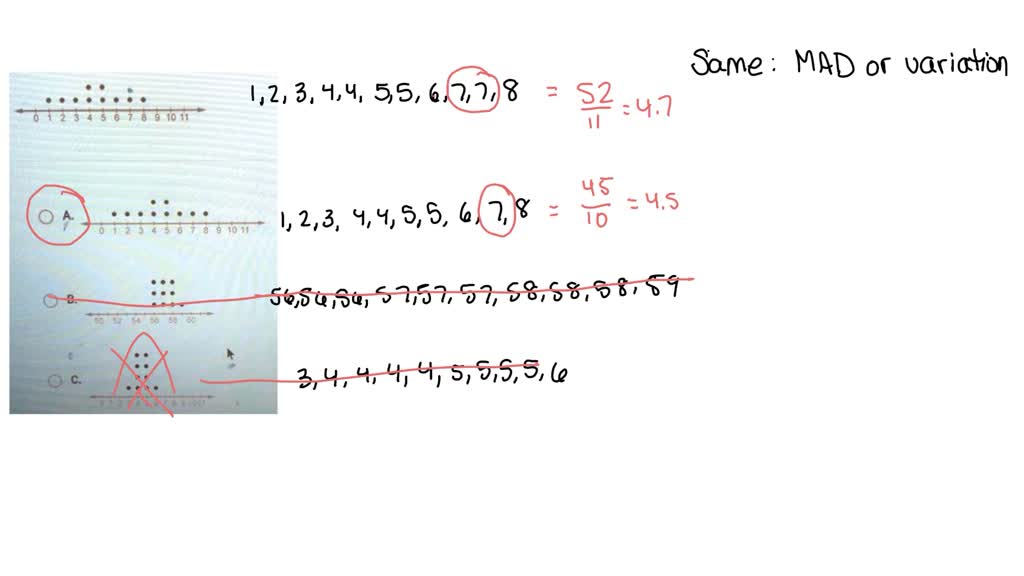 Same: MAD or variation
1, 2, 3, 4, 4, 5, 5, 6, 7, 7, 8 = 52/11 = 4.7
0 1 2 3 4 5 6 7 8 9 10 11
A. 1, 2, 3, 4, 4, 5, 5, 6, 7, 8 = 45/10 = 4.5
0 1 2 3 4 5 6 7 8 9 10 11
B. 56, 56, 56, 57, 57, 57, 58, 58, 58, 59
50 52 54 56 58 60
C. 3, 4, 4, 4, 4, 5, 5, 5, 5, 6